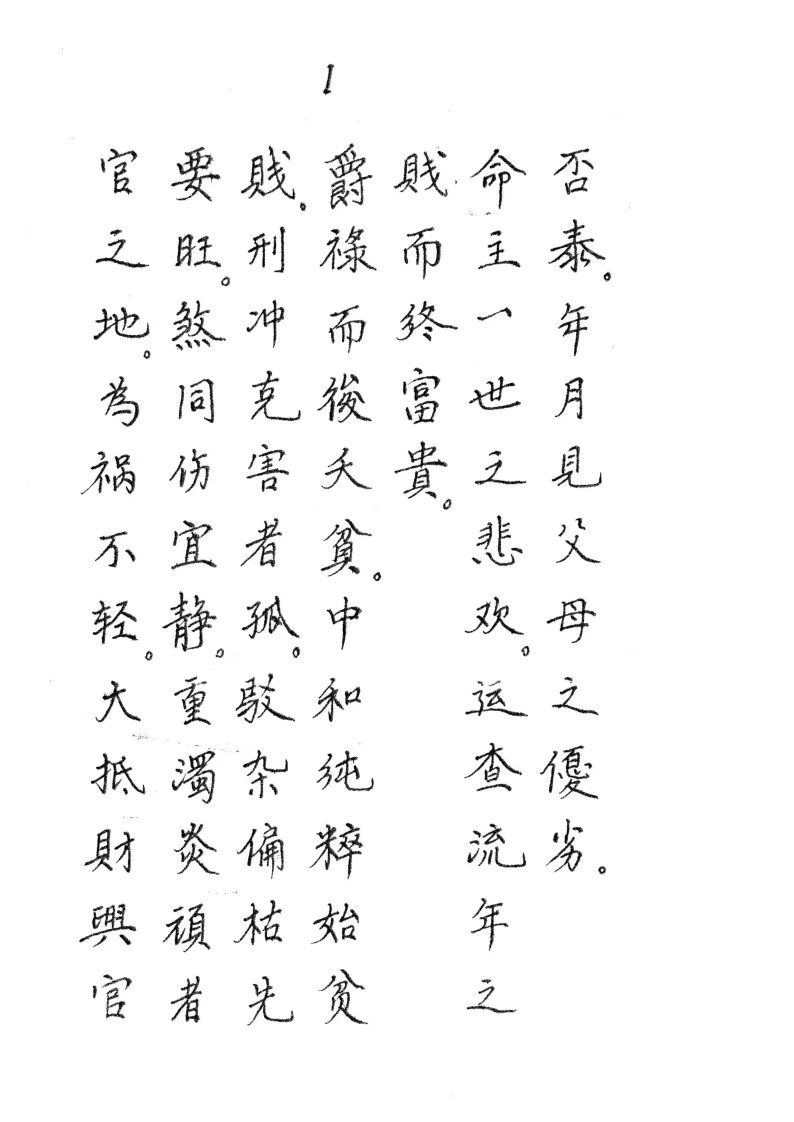 1
官之地。為祸不轻。大抵財與官
要旺。煞同伤宜静。重濁炎頑者
賎。刑冲克害者孤。駁杂偏枯先
爵禄而後夭貧。中和纯粹始贫
賎而终富貴。
命主一世之悲欢。运查流年之
否泰。年月見父母之優劣。